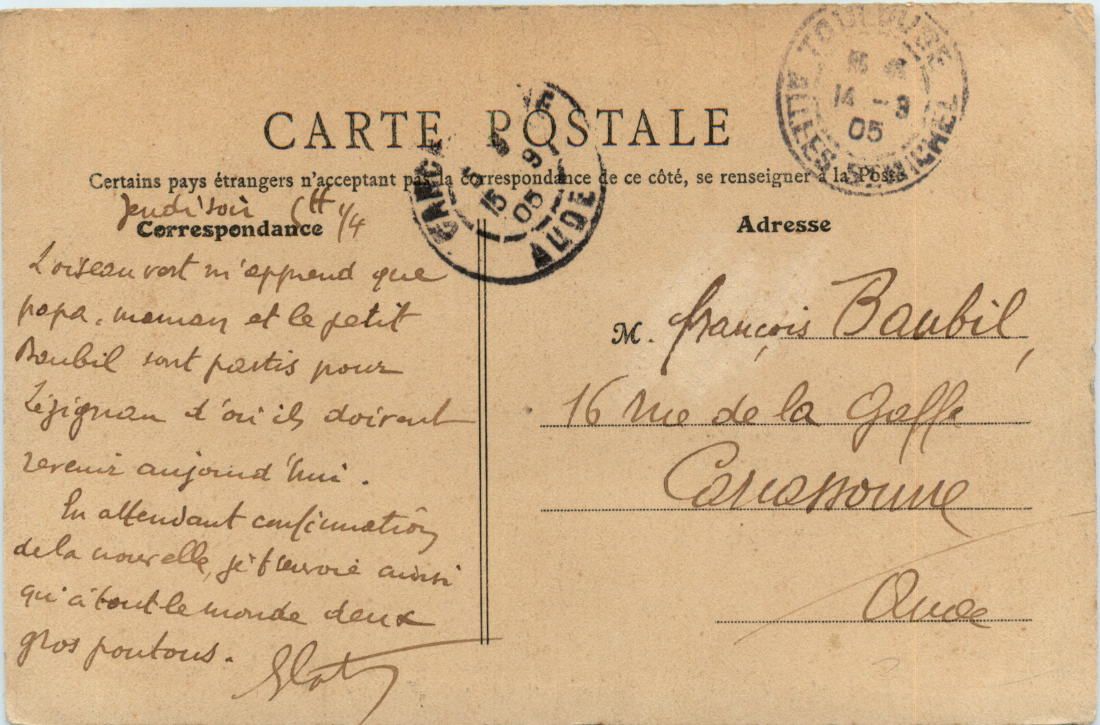 TOULOUSE
14 - 9
05
ALLÉES ST MICHEL
CARTE POSTALE
15 9
05
AUDE
Certains pays étrangers n'acceptent pas la correspondance de ce côté, se renseigner à la Poste
Jeudi soir 6h 1/4
Correspondance
Adresse
L'oiseau vert m'apprend que
papa, maman et le petit
Baubil sont partis pour
Lézignan d'où ils doivent
revenir aujourd'hui.
En attendant confirmation
de la nouvelle, je t'envoie ainsi
qu'à tout le monde deux
gros poutous.
M. François Baubil,
16 rue de la Gaffe
Carcassonne
Aude